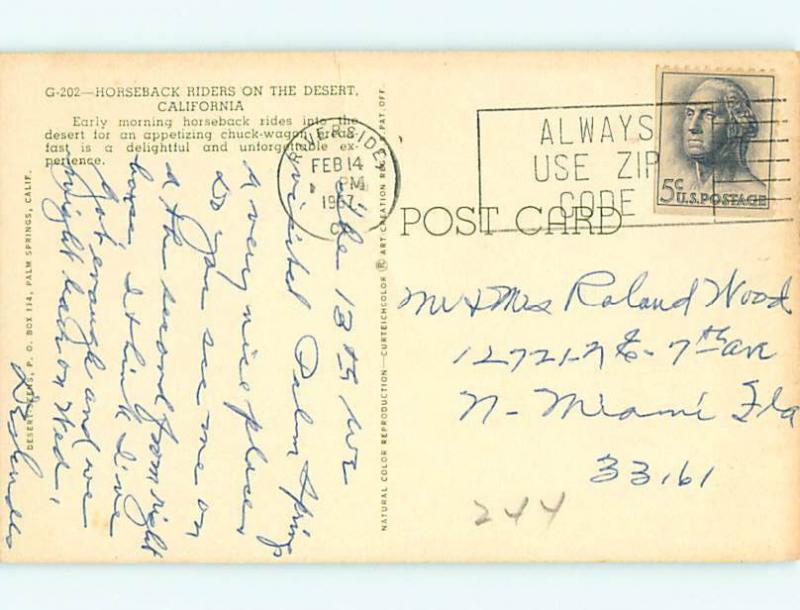 G-202—HORSEBACK RIDERS ON THE DESERT,
CALIFORNIA
Early morning horseback rides into the
desert for an appetizing chuck-wagon break-
fast is a delightful and unforgettable ex-
perience.
DESERT P. O. BOX 114, PALM SPRINGS, CALIF.
NATURAL COLOR REPRODUCTION—CURTEICHCOLOR ® ART-CREATION REG. U.S. PAT. OFF.
RIVERSIDE
FEB 14
PM
1967
ALWAYS
USE ZIP
CODE
5c U.S. POSTAGE
POST CARD
the 13th we
visited Palm Springs
a very nice place,
do you see me on
the second from right
horse I think I've
got enough and we
might on Wed,
Mr & Mrs Roland Wood
12721 7th ave
N- Miami Fla
33161
244